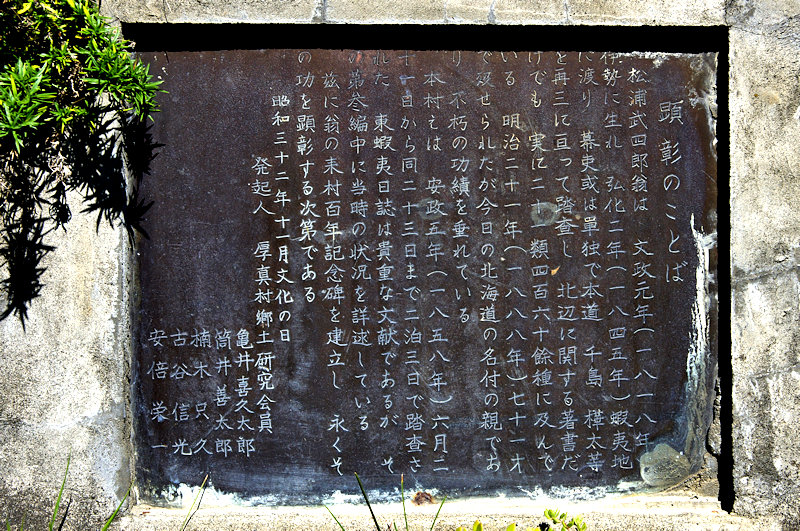 顕彰のことば
松浦武四郎翁は 文政元年(一八一八年)
伊勢に生れ 弘化二年(一八四五年)蝦夷地
に渡り 幕吏或は単独で本道 千島 樺太等
を再三に亘って踏査し 北辺に関する著書だ
けでも 実に二十一類四百六十餘種に及んで
いる 明治二十一年(一八八八年)七十一才
で歿せられたが今日の北海道の名付の親であ
り 不朽の功績を垂れている
本村えは 安政五年(一八五八年)六月二
十一日から同二十三日まで二泊三日で踏査さ
れた 東蝦夷日誌は貴重な文献であるが そ
の第参編中に当時の状況を詳述している
茲に翁の来村百年記念碑を建立し 永くそ
の功を顕彰する次第である
昭和三十二年十一月文化の日
発起人 厚真村郷土研究会員
亀井喜久太郎
筒井善太郎
楠木只久
古谷信光
安倍栄一